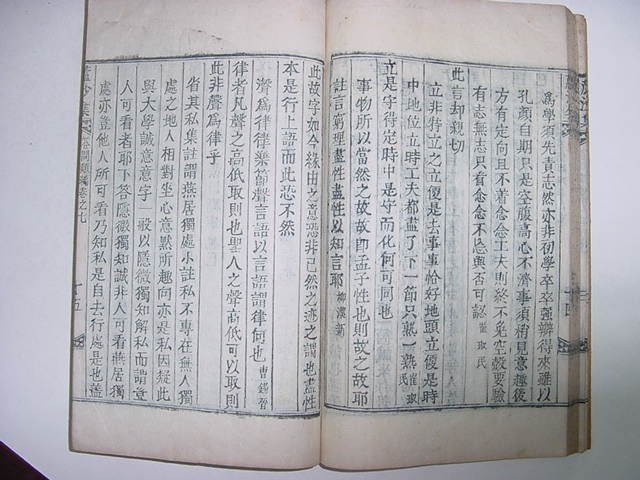 爲學須先責志然亦非初學卒卒强辦得來雖以
孔顔自期只是空腹高心不濟事須稍見意趣後
方有定向且不着念念工夫則終不免空殼要驗
有志無志只看念念不忘與否可認 崔琡氏
此言却親切
立非特立之立便是去事事恰好地頭立便是時
中地位立時工夫都盡了下一節只熟一熟 崔琡氏
立是守得定時中是守而化何可同也
事物所以當然之故故即孟子性也則故之故耶
註言窮理盡性盡性以知言耶 柳漢新
此故字如今緣由之意恐非已然之迹之謂也盡性
本是行上語而此恐不然
聲爲律律樂節聲言語以言語謂律何也 曺錫晉
律者凡聲之高低取則也聖人之聲高低可以取則
此非聲爲律乎
省其私集註謂燕居獨處小註私不專在無人獨
處之地人相對坐心意默所趣向亦是私因疑此
與大學誠意意字一般以隱微獨知解私而謂章
人可看者耶下答隱微獨知誠非人可看燕居獨
處亦豈他人所可看乃知私是自去行處是也蓋
卷之七
十五